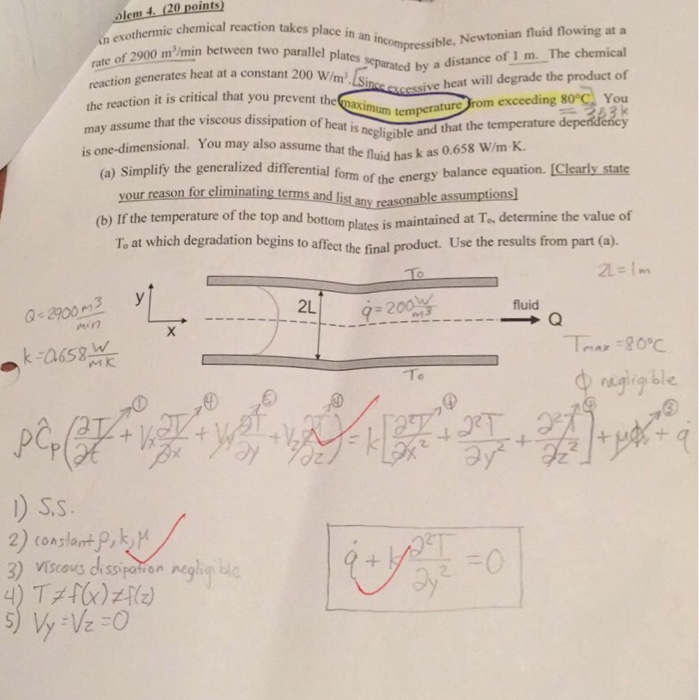 olem 4. (20 points)
an exothermic chemical reaction takes place in an incompressible, Newtonian fluid flowing at a
rate of 2900 m³/min between two parallel plates separated by a distance of 1 m. The chemical
reaction generates heat at a constant 200 W/m³. [Since excessive heat will degrade the product of
the reaction it is critical that you prevent the maximum temperature from exceeding 80°C. You
= 353K
may assume that the viscous dissipation of heat is negligible and that the temperature dependency
is one-dimensional. You may also assume that the fluid has k as 0.658 W/m·K.
(a) Simplify the generalized differential form of the energy balance equation. [Clearly state
your reason for eliminating terms and list any reasonable assumptions]
(b) If the temperature of the top and bottom plates is maintained at T₀, determine the value of
T₀ at which degradation begins to affect the final product. Use the results from part (a).
To 2L=1m
Q=2900 m³/min
y
x
2L
q̇=200 W/m³
fluid
Q
k=0.658 W/mK
Tmax=80°C
To
ϕ negligible
① ④ ⑤ ④ ④ ③
ρĈp(∂T/∂t + Vx ∂T/∂x + Vy ∂T/∂y + Vz ∂T/∂z) = k[∂²T/∂x² + ∂²T/∂y² + ∂²T/∂z²] + μϕ + q̇
1) S.S.
2) constant ρ, k, μ
3) viscous dissipation negligible
q̇ + k ∂²T/∂y² = 0
4) T≠f(x)≠f(z)
5) Vy=Vz=0